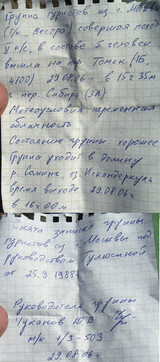 Группа туристов из г. Москва
(т/к „Вестра") совершая поход
V к/с, в составе 5 человек
вышла на пер. Томск (1Б,
4100) 29.08.06 в 15ч 35м
с пер. Сибирь (3А)
Метеоусловия: переменная
облачность
Состояние группы: хорошее
Группа уходит в долину
р. Самине. оз. Искандеркуль
время выхода 29.08.06
в 16ч 00м
Снята записка группы
туристов из Москвы под
руководством
от 25.9 1988
Руководитель группы
Чуканов
м/к 1/3-503
29.08.06